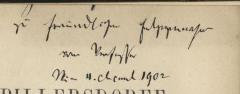 zu freundlicher Entgegennahme
vom Verfasser
Wien 4. 1902
PILLERSDORFF